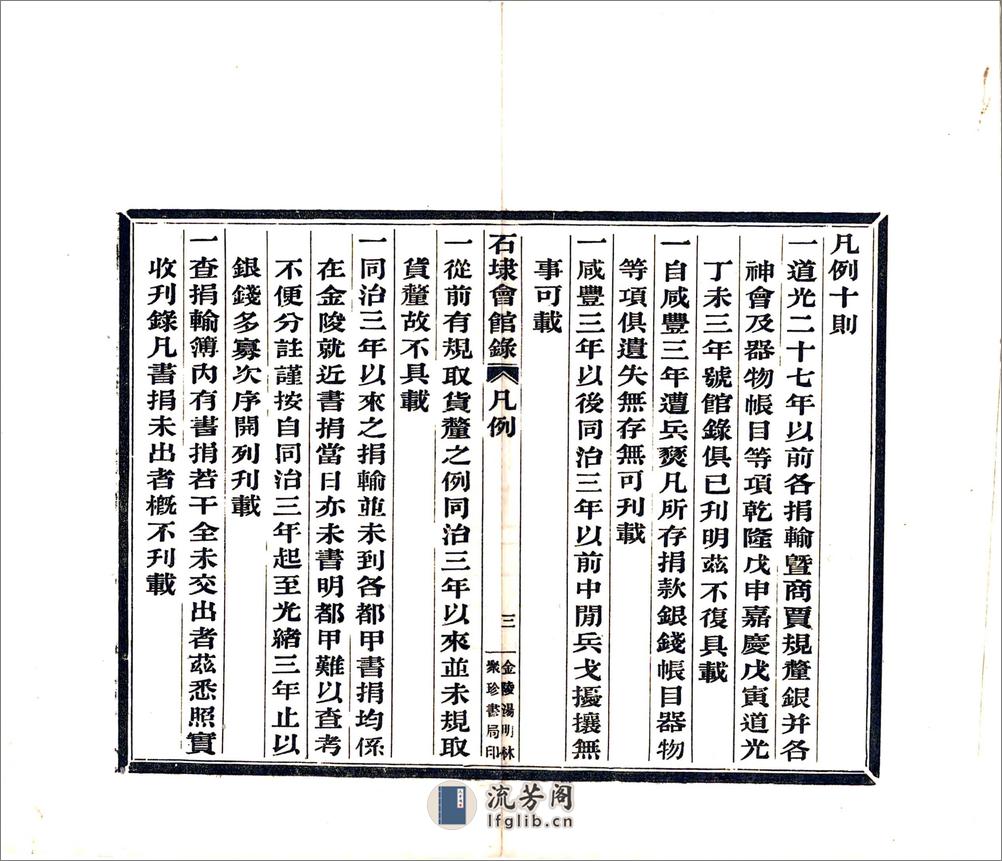 凡例十則
一道光二十七年以前各捐輸暨商賈規釐銀并各
神會及器物帳目等項乾隆戊申嘉慶戊寅道光
丁未三年號館錄俱已刊明茲不復具載
一自咸豐三年遭兵燹凡所存捐款銀錢帳目器物
等項俱遺失無存無可刊載
一咸豐三年以後同治三年以前中閒兵戈擾攘無
事可載
石埭會館錄 凡例 三
金陵湯明林
聚珍書局印
一從前有規取貨釐之例同治三年以來並未規取
貨釐故不具載
一同治三年以來之捐輸並未到各都甲書捐均係
在金陵就近書捐當日亦未書明都甲難以查考
不便分註謹按自同治三年起至光緒三年止以
銀錢多寡次序開列刊載
一查捐輸簿內有書捐若干全未交出者茲悉照實
收刊錄凡書捐未出者概不刊載
流芳阁
lfglib.cn